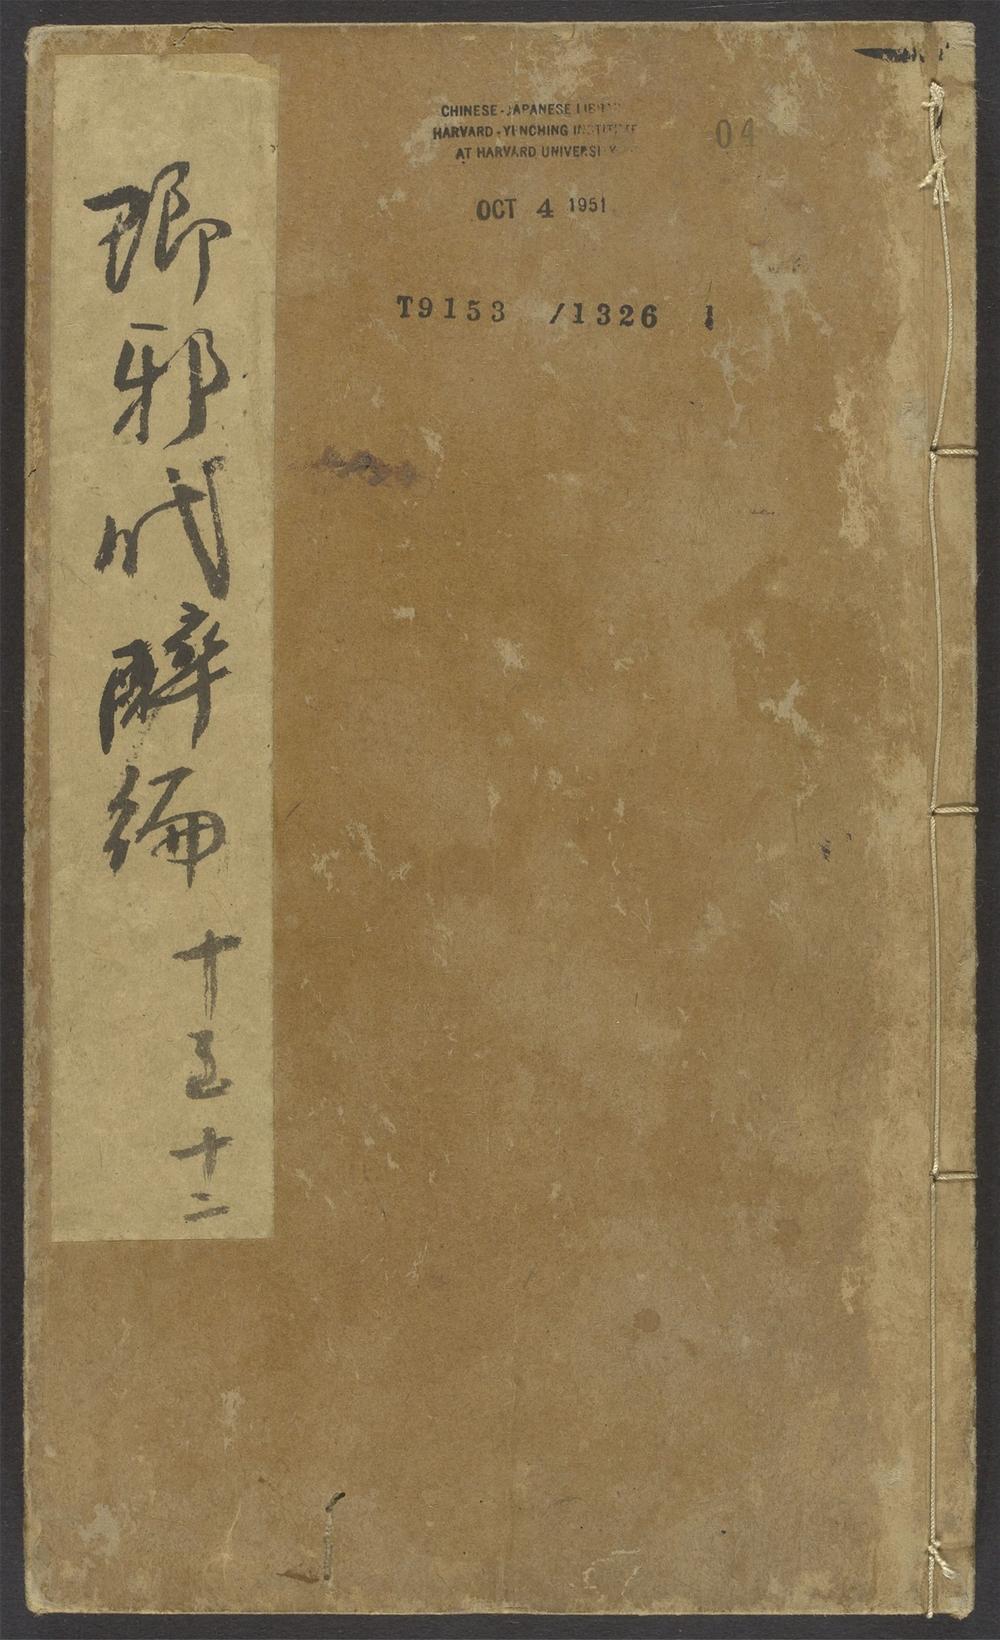 CHINESE-JAPANESE LIBRARY
HARVARD-YENCHING INSTITUTE
AT HARVARD UNIVERSITY
04
OCT 4 1951
T9153 /1326 1
瑯邪代醉編 十至十二